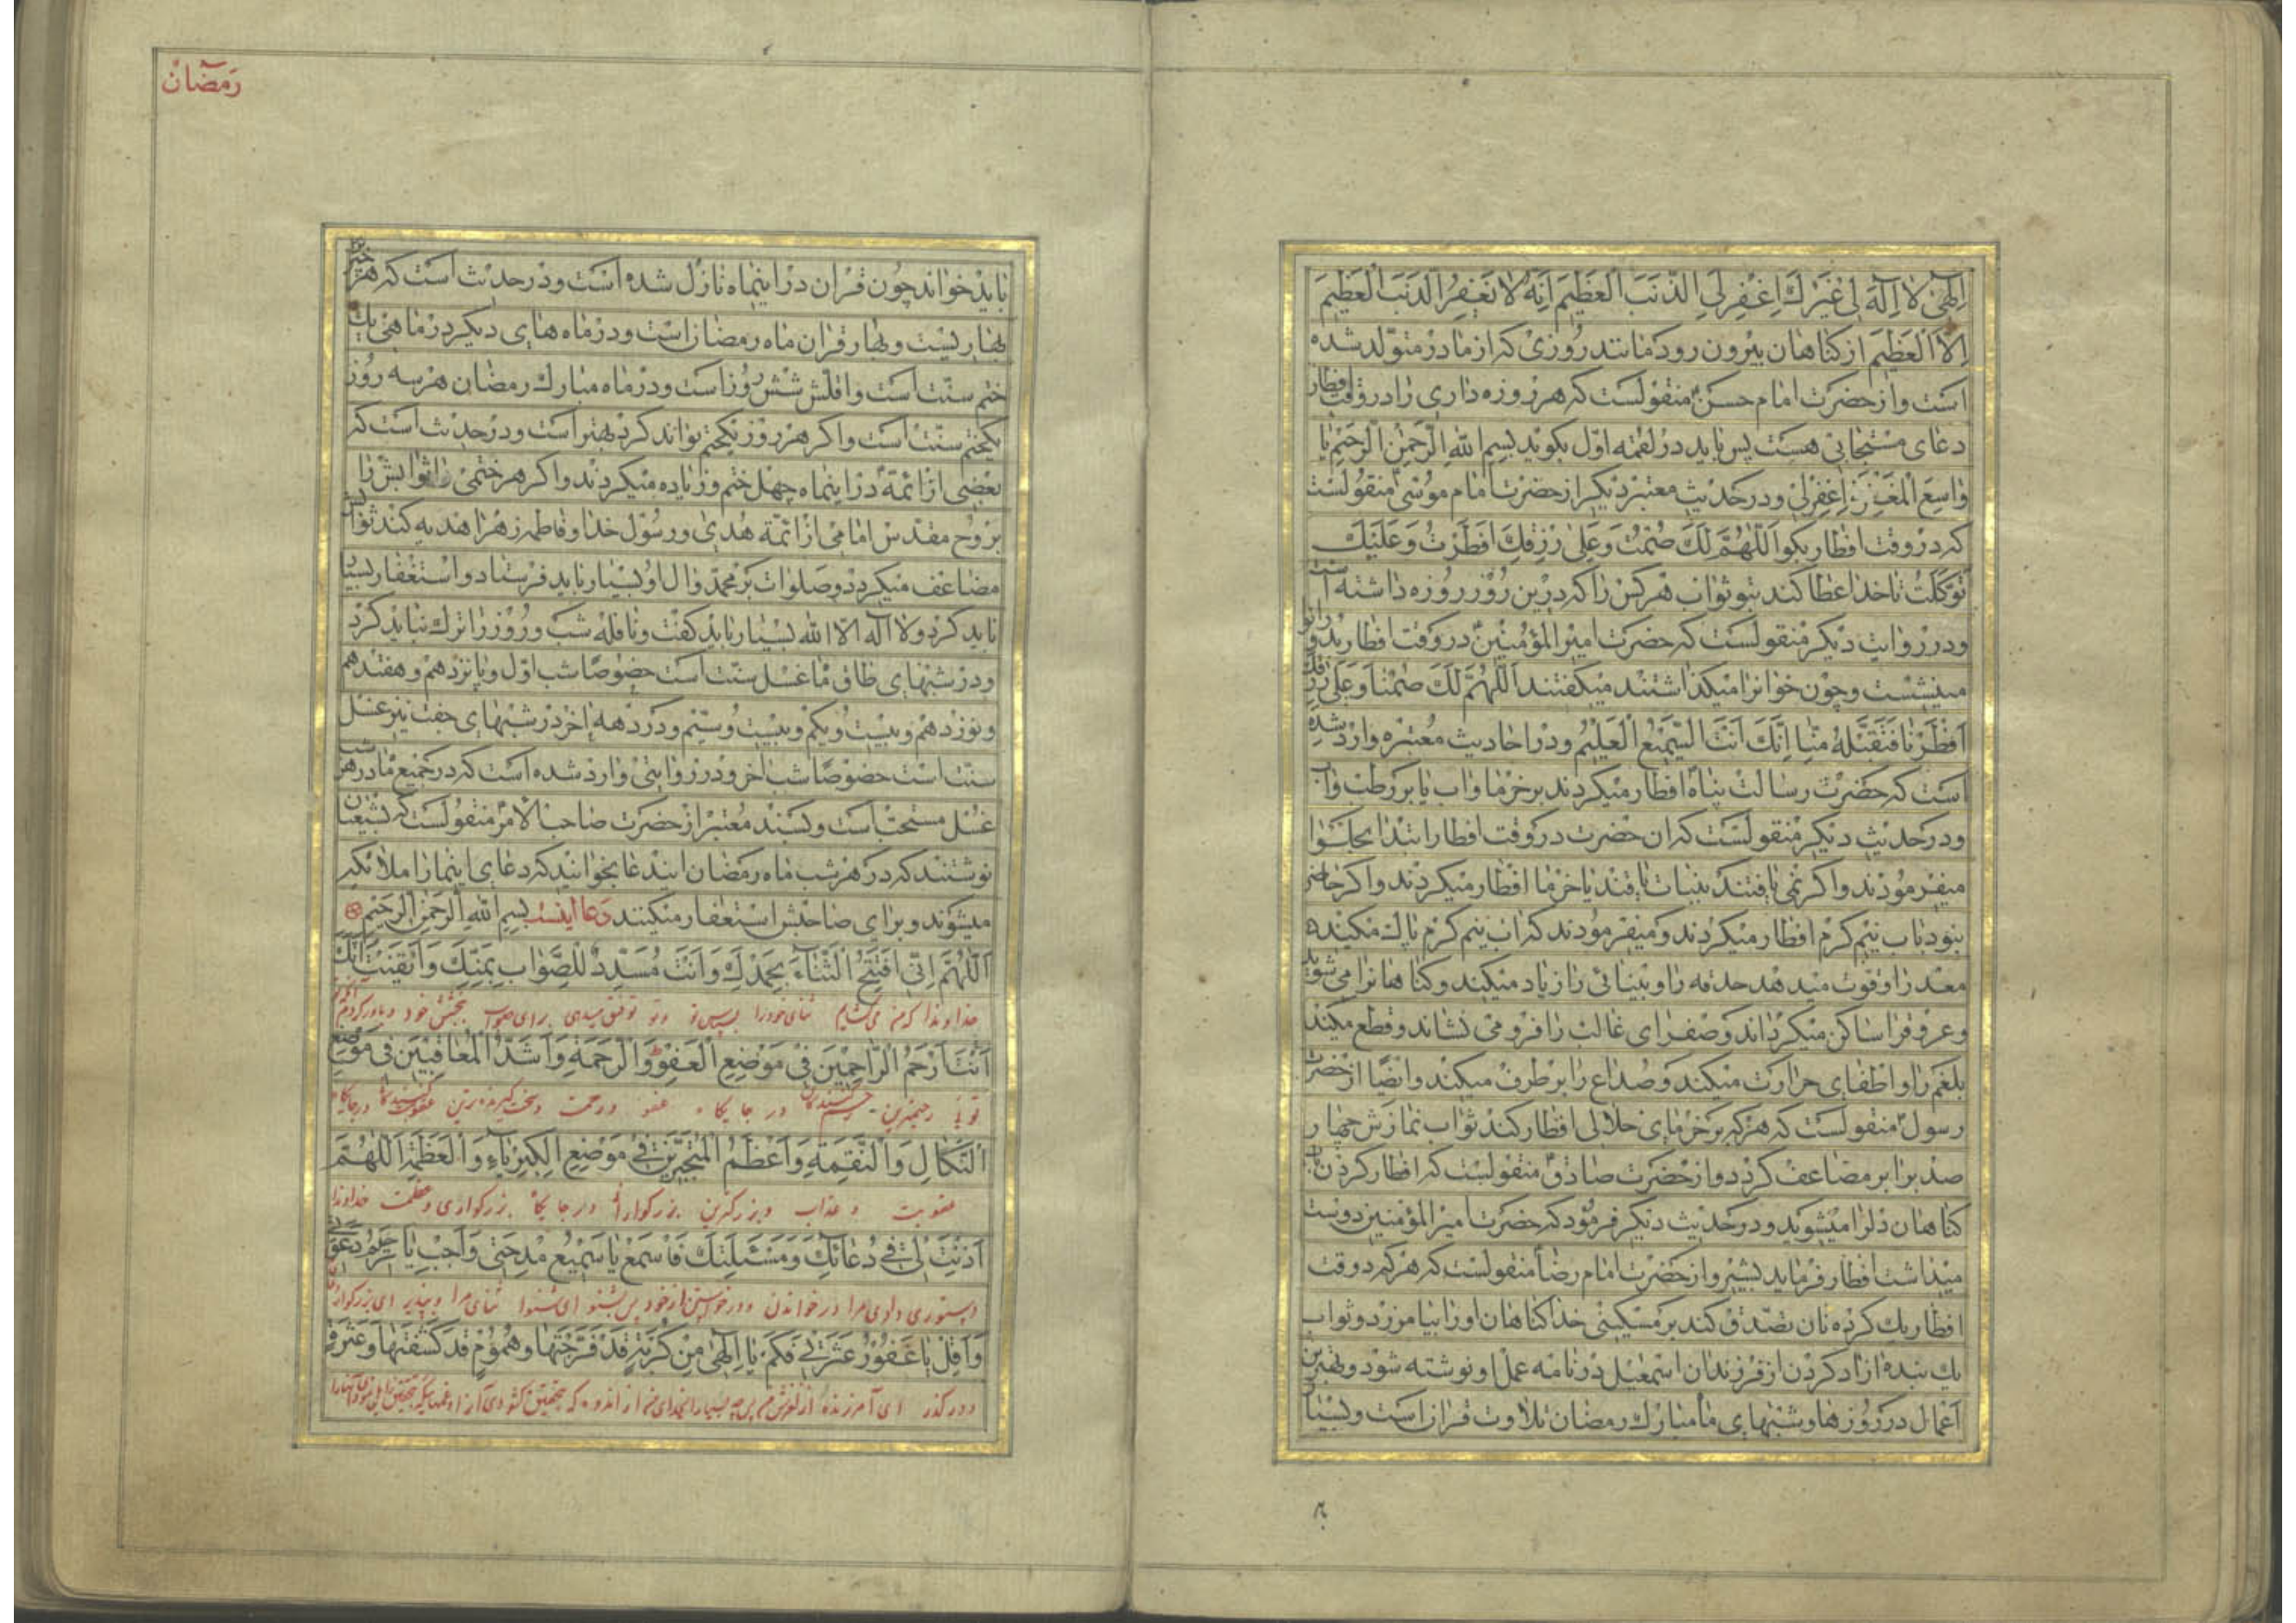 الهی لا اله لی غیرك اغفر لی الذنب العظیم انه لا یغفر الذنب العظیم
الا العظیم از کناهان بیرون رود مانند روزی که از مادر متولد شده
است و از حضرت امام حسن منقولست که هر روزه داری را در وقت افطار
دعای مستجابی هست پس باید در لقمه اول بکوید بسم الله الرحمن الرحیم یا
واسع المغفرة اغفر لی و در حدیث معتبر دیکر از حضرت امام موسی منقولست
که در وقت افطار بکو اللهم لك صمت و علی رزقك افطرت و علیك
توکلت تا خدا عطا کند بتو ثواب هر کس را که درین روز روزه داشته است
و در روایت دیکر منقولست که حضرت امیر المؤمنین در وقت افطار بدو زانو
مینشست و چون خوانرا میکذاشتند میکفتند اللهم لك صمنا و علی رزقك
افطرنا فتقبله منا انك انت السمیع العلیم و در احادیث معتبره وارد شده
است که حضرت رسالت پناه افطار میکردند بر خرما و اب یا بر رطب و اب
و در حدیث دیکر منقولست که ان حضرت در وقت افطار ابتدا بحلوا
میفرمودند و اکر نمی یافتند بنبات یا قند یا خرما افطار میکردند و اکر حاضر
نبود باب نیم کرم افطار میکردند و میفرمودند که اب نیم کرم پاك میکند
معده را و قوت میدهد حدقه را و بینائی را زیاد میکند و کناهانرا می شوید
و عروقرا ساکن میکرداند و صفرای غالب را فرو می نشاند و قطع میکند
بلغم را و اطفای حرارت میکند و صداع را بر طرف میکند و ایضا از حضرت
رسول منقولست که هر که بر خرمای حلالی افطار کند ثواب نمازش چهار
صد برابر مضاعف کردد و از حضرت صادق منقولست که افطار کردن باب
کناهان دلرا میشوید و در حدیث دیکر فرمود که حضرت امیر المؤمنین دوست
میداشت افطار فرماید بشیر و از حضرت امام رضا منقولست که هر که در وقت
افطار یك کرده نان تصدق کند بر مسکینی خدا کناهان او را بیامرزد و ثواب
یك بنده ازاد کردن از فرزندان اسمعیل در نامه عمل او نوشته شود و بهترین
اعمال در روزها و شبهای ماه مبارك رمضان تلاوت قران است و بسیار
رمضان
باید خواند چون قران در اینماه نازل شده است و در حدیث است که هر چیز را
بهاریست و بهار قران ماه رمضان است و در ماه های دیکر در ماهی یك
ختم سنت است و اقلش شش روز است و در ماه مبارك رمضان هر سه روز
یکختم سنت است و اکر هر روز یکختم تواند کرد بهتر است و در حدیث است که
بعضی از ائمه در اینماه چهل ختم و زیاده میکردند و اکر هر ختمی را ثوابش را
بروح مقدس امامی از ائمه هدی و رسول خدا و فاطمه زهرا هدیه کند ثوابش
مضاعف میکردد و صلوات بر محمد و ال او بسیار باید فرستاد و استغفار بسیار
باید کرد و لا اله الا الله بسیار باید کفت و نافله شب و روز را ترك نباید کرد
و در شبهای طاق ماه غسل سنت است خصوصا شب اول و پانزدهم و هفتدهم
و نوزدهم و بیست و یکم و بیست و سیم و در دهه اخر در شبهای جفت نیز غسل
سنت است خصوصا شب اخر و در روایتی وارد شده است که در جمیع ماه در هر شب
غسل مستحب است و بسند معتبر از حضرت صاحب الامر منقولست که بشیعیان
نوشتند که در هر شب ماه رمضان ایندعا بخوانید که دعای اینماه را ملائکه
میشنوند و برای صاحبش استغفار میکنند دعا اینست بسم الله الرحمن الرحیم
اللهم انی افتتح الثناء بحمدك و انت مسدد للصواب بمنك و ایقنت انك
خداوندا که من می کشایم ثنای خود را بسپاس تو و تو توفیق میدهی برای صواب ببخشش خود و باور کردم
انت ارحم الراحمین فی موضع العفو و الرحمة و اشد المعاقبین فی موضع
توئی رحیمترین رحم کنندکان در جایکاه عفو و رحمت و سخت کیرنده ترین عقوبت کنندکان در جایکاه
النکال و النقمة و اعظم المتجبرین فی موضع الکبریاء و العظمة اللهم
عقوبت و عذاب و بزرکترین بزرکواران در جایکاه بزرکواری و عظمت خداوندا
اذنت لی فی دعائك و مسئلتك فاسمع یا سمیع مدحتی و اجب یا رحیم دعوتی
دستوری دادی مرا در خواندن و درخواستن از خود پس بشنو ای شنوا ثنای مرا و بپذیر ای بزرکوار
و اقل یا غفور عثرتی فکم یا الهی من کربة قد فرجتها و هموم قد کشفتها و عثرة
و در کذر ای آمرزنده از لغزش من پس چه بسیار ای خدای من از اندوه که بتحقیق